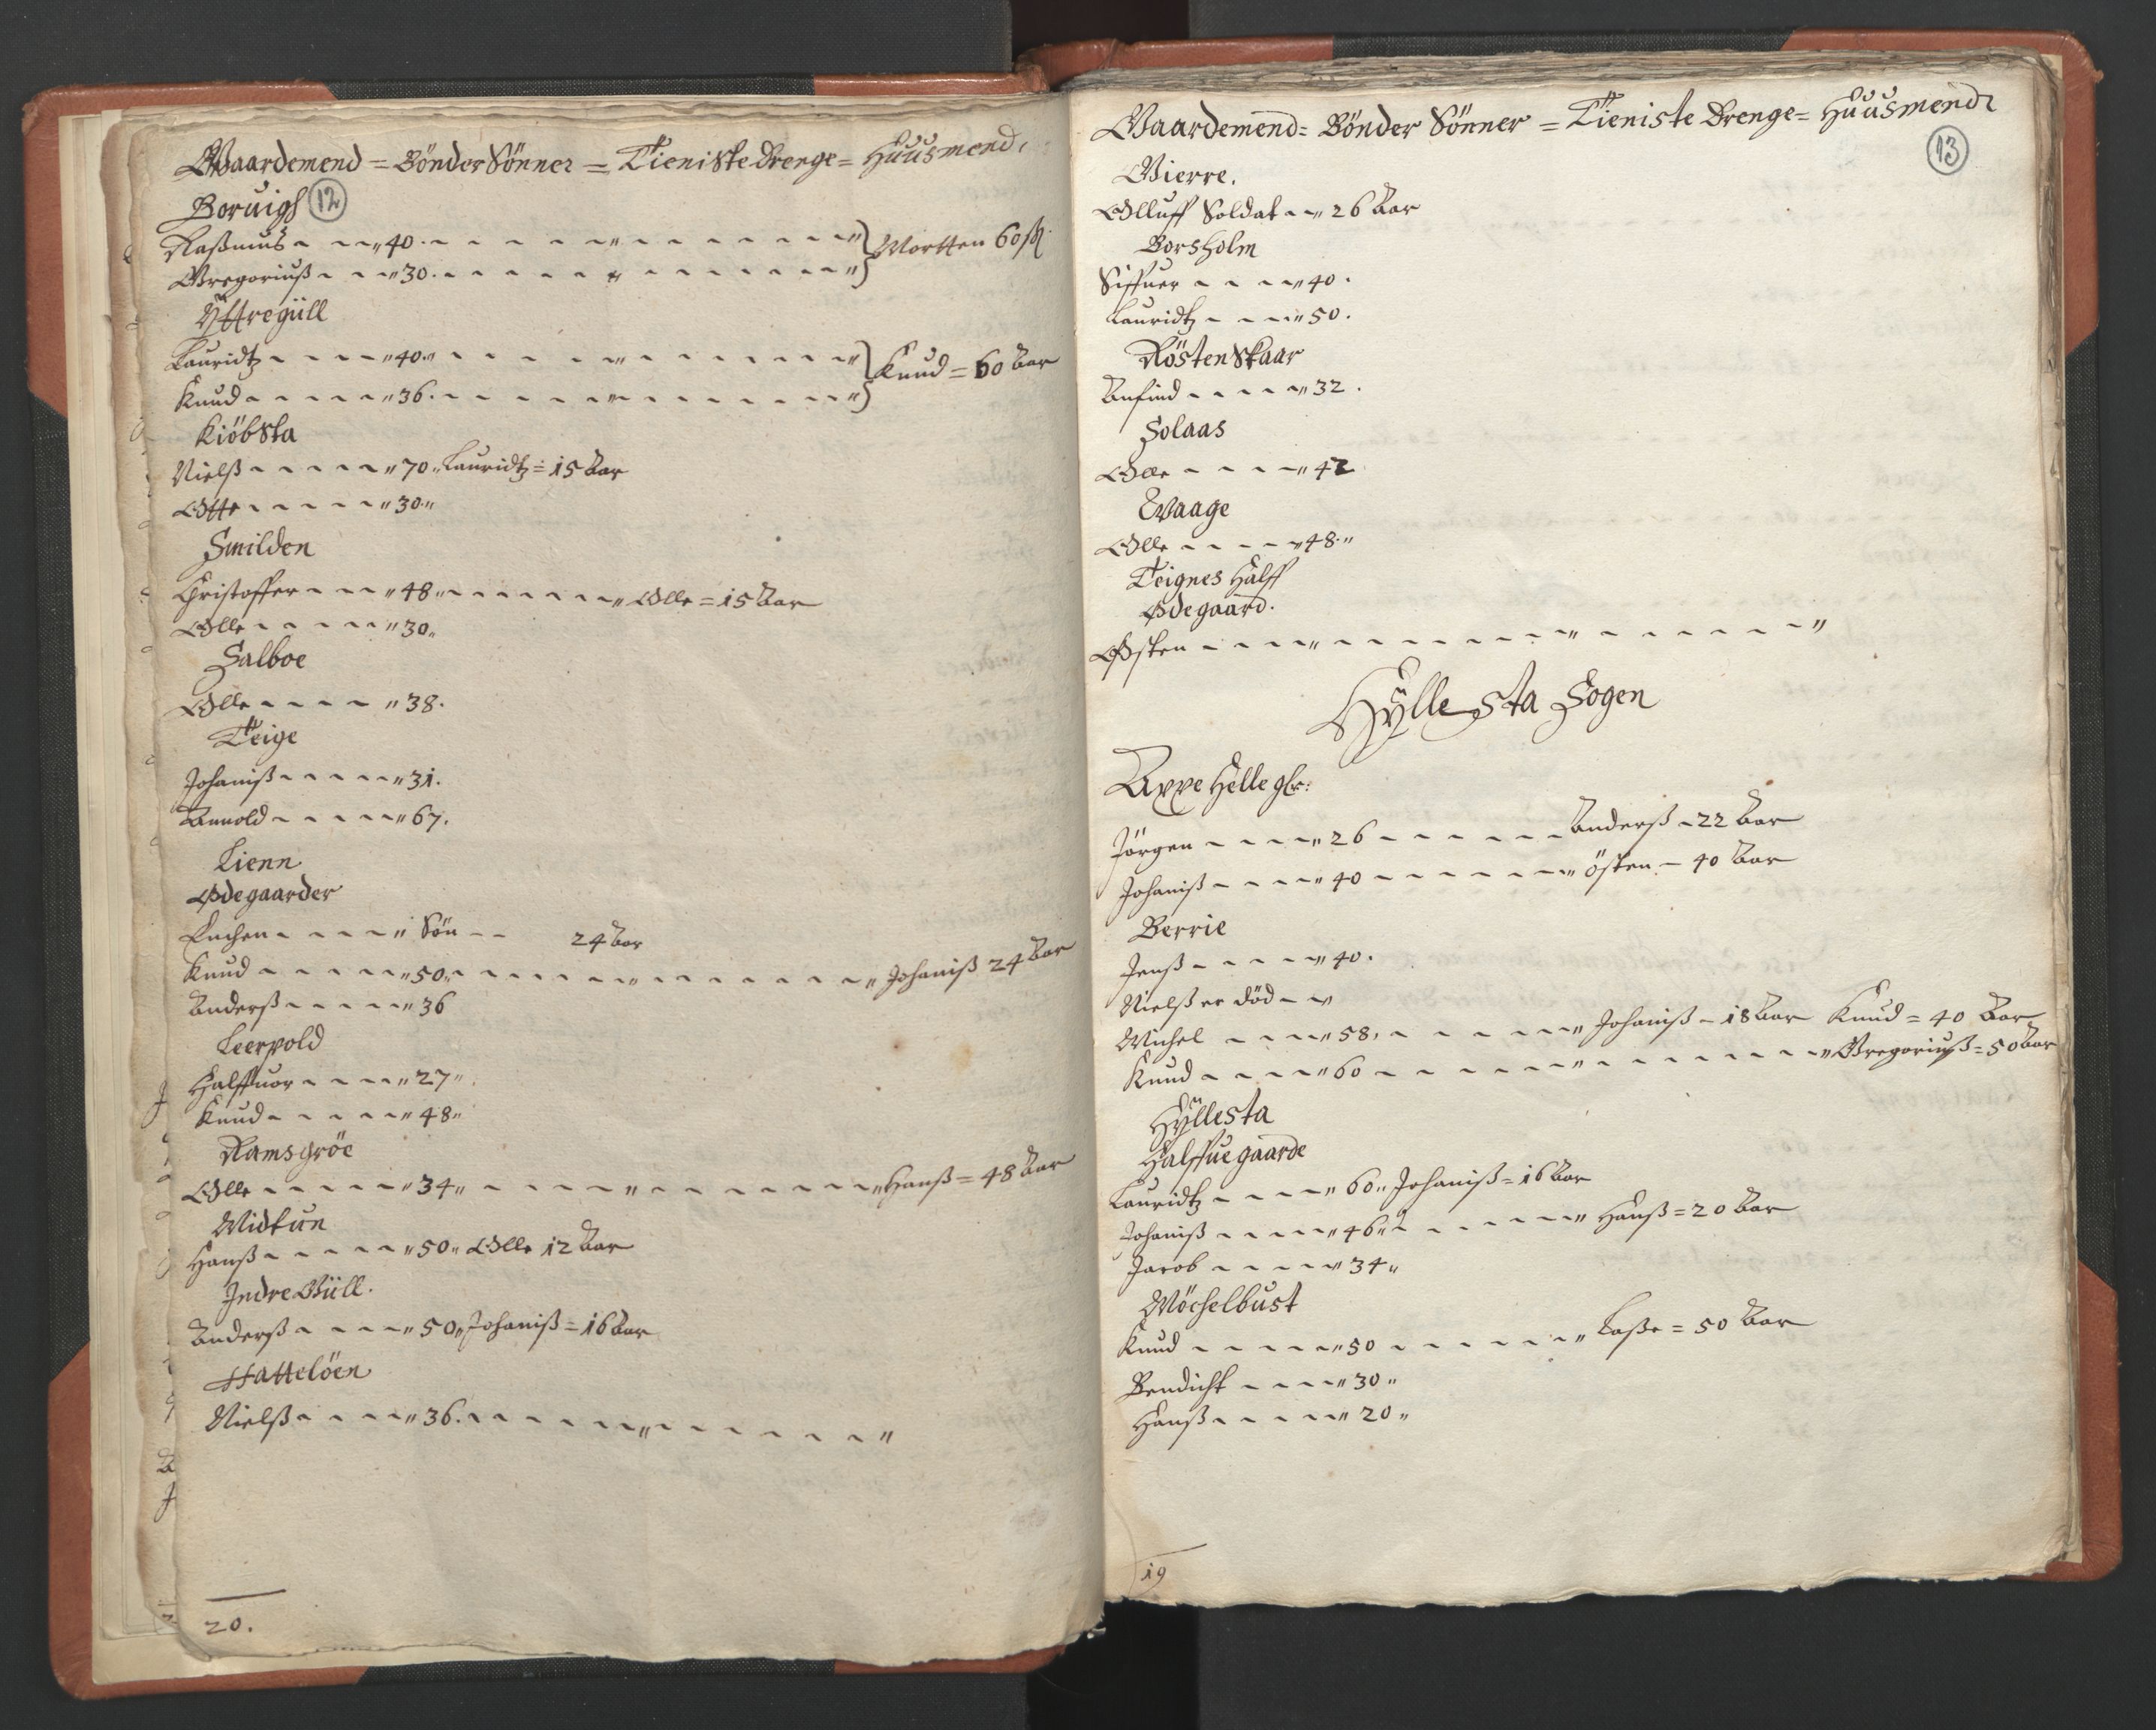 Gaardemend = Bönder Sönner = Tieniste Drenge = Huusmend
Boruigh 12
Raßmus - - - 40 - - - } Mortten 60
Gregoriuß - - - 30 - - - }
Yttregüll
Lauridtz - - - 40 - - - } Knud = 60 aar
Knud - - - 36 - - - }
Kiöbsta
Nielß - - - 70 Lauridtz = 15 aar
Otte - - - 30
Smilden
Christoffer - - - 48 - - - Olle = 15 aar
Olle - - - 30
Salboe
Olle - - - 38
Teige
Johaniß - - - 31
Annold - - - 67
Lienn
Ødegaarder
Enchen - - - Sön - - 24 aar
Knud - - - 50 - - - Johaniß 24 aar
Anderß - - - 36
Leerpold
Halffuor - - - 27
Knud - - - 48
Ramsgröe
Olle - - - 34 - - - Hanß = 48 aar
Midtun
Hanß - - - 50 Olle 12 aar
Indre Güll
Anderß - - - 50 Johaniß = 16 aar
Hattelöen
Nielß - - - 36 - - -
20.
Gaardemend = Bönder Sönner = Tieniste Drenge = Huusmend
13
Gierre.
Olluff Soldat - - 26 aar
Borsholm
Siffuer - - - 40
Lauridtz - - - 50
Röstenskaar
Anfind - - - 32
Solaas
Olle - - - 42
Waage
Olle - - - 48
Teignes Halff
Ødegaard.
Østen - - -
Hyllesta Sogen
Axxe Helle
Jörgen - - - 26 - - - Anderß - 22 aar
Johaniß - - - 40 - - - Östen - 40 aar
Berrie
Jenß - - - 40
Nielß er död - -
Michel - - - 58 - - - Johaniß - 18 aar Knud = 40 aar
Knud - - - 60 - - - Gregoriuß = 50 aar
Hyllesta
Halffue gaarde
Lauridtz - - - 60 Johaniß = 16 aar
Johaniß - - - 46 - - - Hanß = 20 aar
Jacob - - - 34
Möchelbust
Knud - - - 50 - - - Laße = 50 aar
Bendicht - - - 30
Hanß - - - 20
19